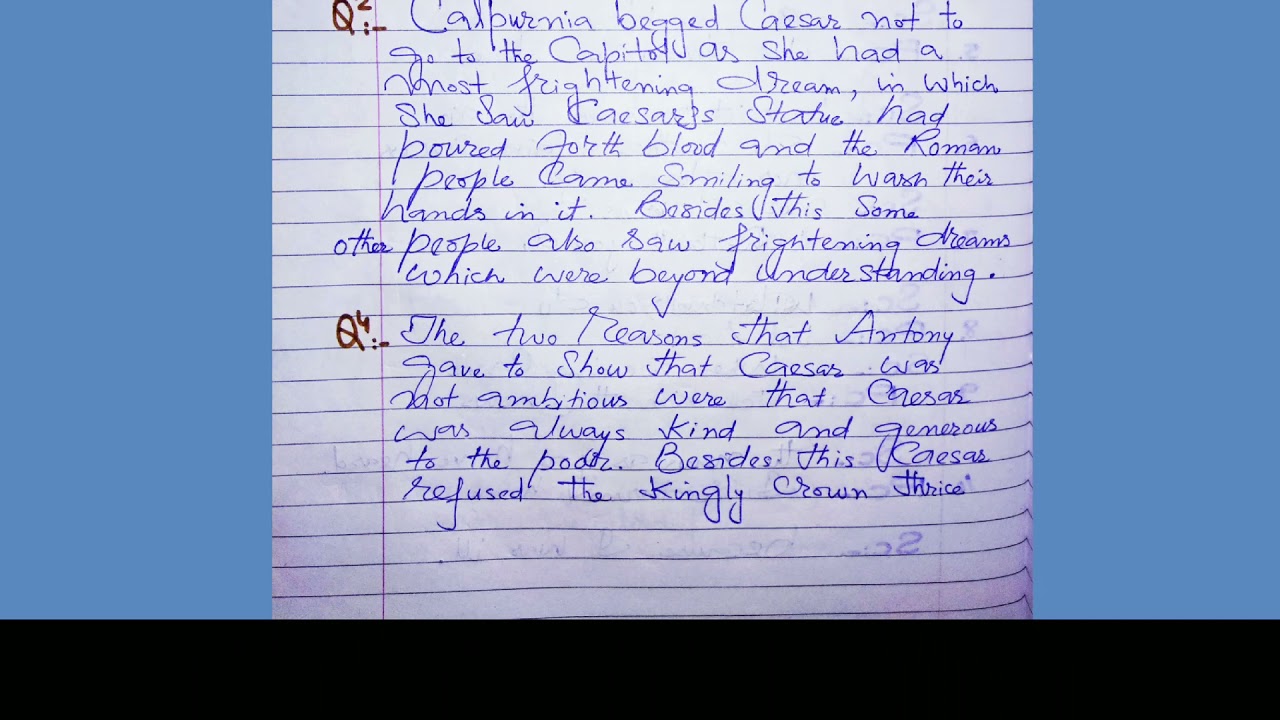 Q2:- Calpurnia begged Caesar not to
go to the Capitol as she had a
most frightening dream, in which
She Saw Caesar's Statue had
poured forth blood and the Roman
people Came Smiling to wash their
hands in it. Besides this Some
other people also saw frightening dreams
which were beyond understanding.
Q4:- The two reasons that Antony
gave to Show that Caesar was
not ambitious were that Caesar
was always kind and generous
to the poor. Besides this Caesar
refused the kingly Crown thrice